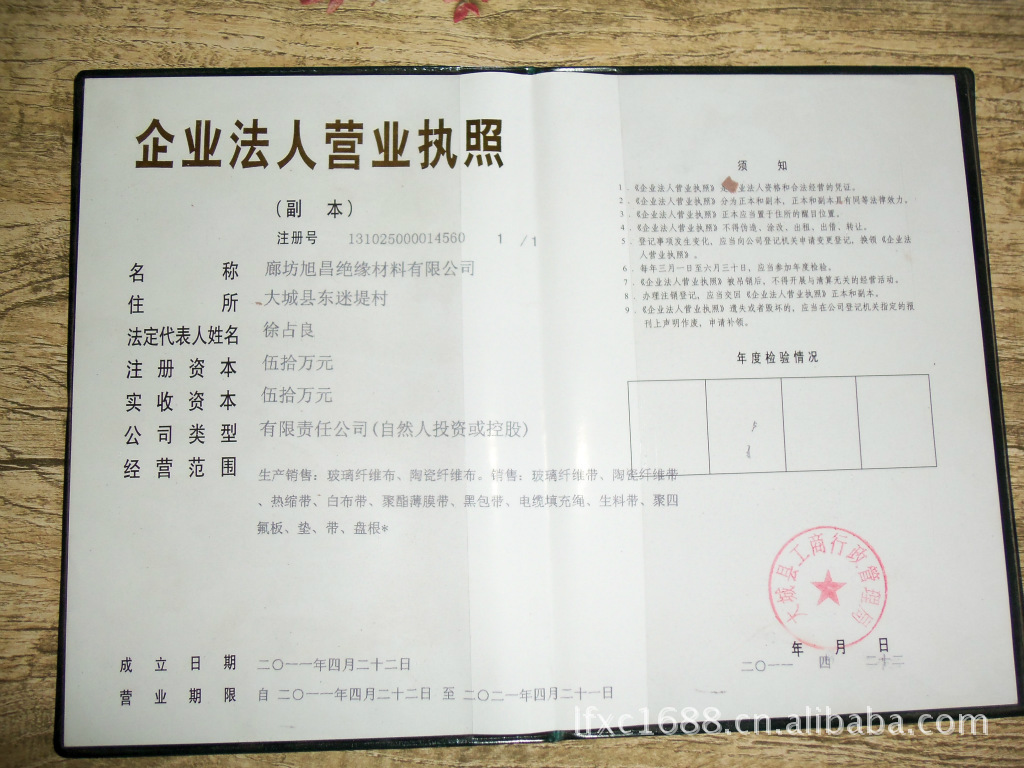 企业法人营业执照
（副 本）
注册号 131025000014560 1 /1
名 称 廊坊旭昌绝缘材料有限公司
住 所 大城县东迷堤村
法定代表人姓名 徐占良
注册资本 伍拾万元
实收资本 伍拾万元
公司类型 有限责任公司(自然人投资或控股)
经营范围 生产销售：玻璃纤维布、陶瓷纤维布。销售：玻璃纤维带、陶瓷纤维带
、热缩带、白布带、聚酯薄膜带、黑包带、电缆填充绳、生料带、聚四
氟板、垫、带、盘根*
成立日期 二〇一一年四月二十二日
营业期限 自 二〇一一年四月二十二日 至 二〇二一年四月二十一日
须 知
1．《企业法人营业执照》是企业法人资格和合法经营的凭证。
2．《企业法人营业执照》分为正本和副本，正本和副本具有同等法律效力。
3．《企业法人营业执照》正本应当置于住所的醒目位置。
4．《企业法人营业执照》不得伪造、涂改、出租、出借、转让。
5．登记事项发生变化，应当向公司登记机关申请变更登记，换领《企业法
人营业执照》。
6．每年三月一日至六月三十日，应当参加年度检验。
7．《企业法人营业执照》被吊销后，不得开展与清算无关的经营活动。
8．办理注销登记，应当交回《企业法人营业执照》正本和副本。
9．《企业法人营业执照》遗失或者毁坏的，应当在公司登记机关指定的报
刊上声明作废，申请补领。
年度检验情况
大城县工商行政管理局
年 月 日
二〇一一 四 二十二
lfxc1688.cn.alibaba.com